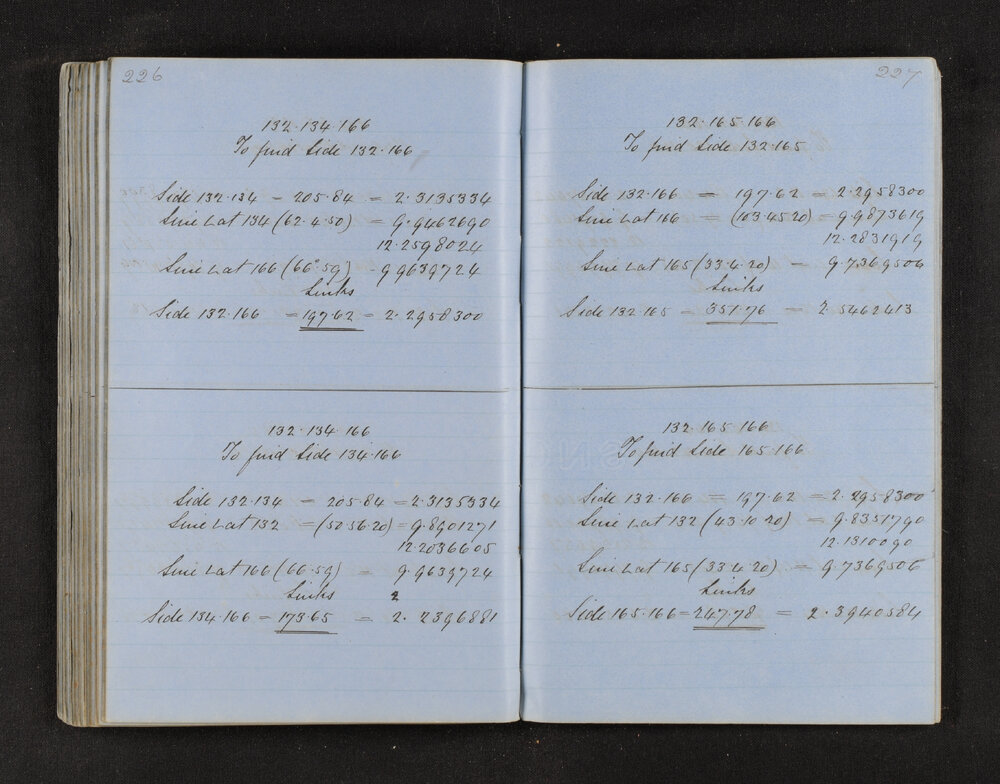 226
132·134·166
To find Side 132·166
Side 132·134 = 205·84 = 2·3135334
Sine Lat 134 (62·4·50) = 9·9462690
12·2598024
Sine Lat 166 (66°·59) 9 9639724
Links
Side 132·166 = 197·62 = 2·2958300
132·134·166
To find Side 134·166
Side 132·134 = 205·84 = 2·3135334
Sine Lat 132 = (50·56·20) = 9·8901271
12·2036605
Sine Lat 166 (66·59) = 9·9639724
Links 2
Side 134·166 = 173·65 = 2·2396881
227
132·165·166
To find Side 132·165
Side 132·166 = 197·62 = 2·2958300
Sine Lat 166 = (103·45 20) = 9·9873619
12·2831919
Sine Lat 165 (33·4·20) = 9·7369506
Links
Side 132·165 = 351·76 = 2·5462413
132·165·166
To find Side 165·166
Side 132·166 = 197·62 = 2·2958300
Sine Lat 132 (43·10·20) = 9·8351790
12·1310090
Sine Lat 165 (33·4·20) = 9·7369506
Links
Side 165·166 = 247·78 = 2·3940584